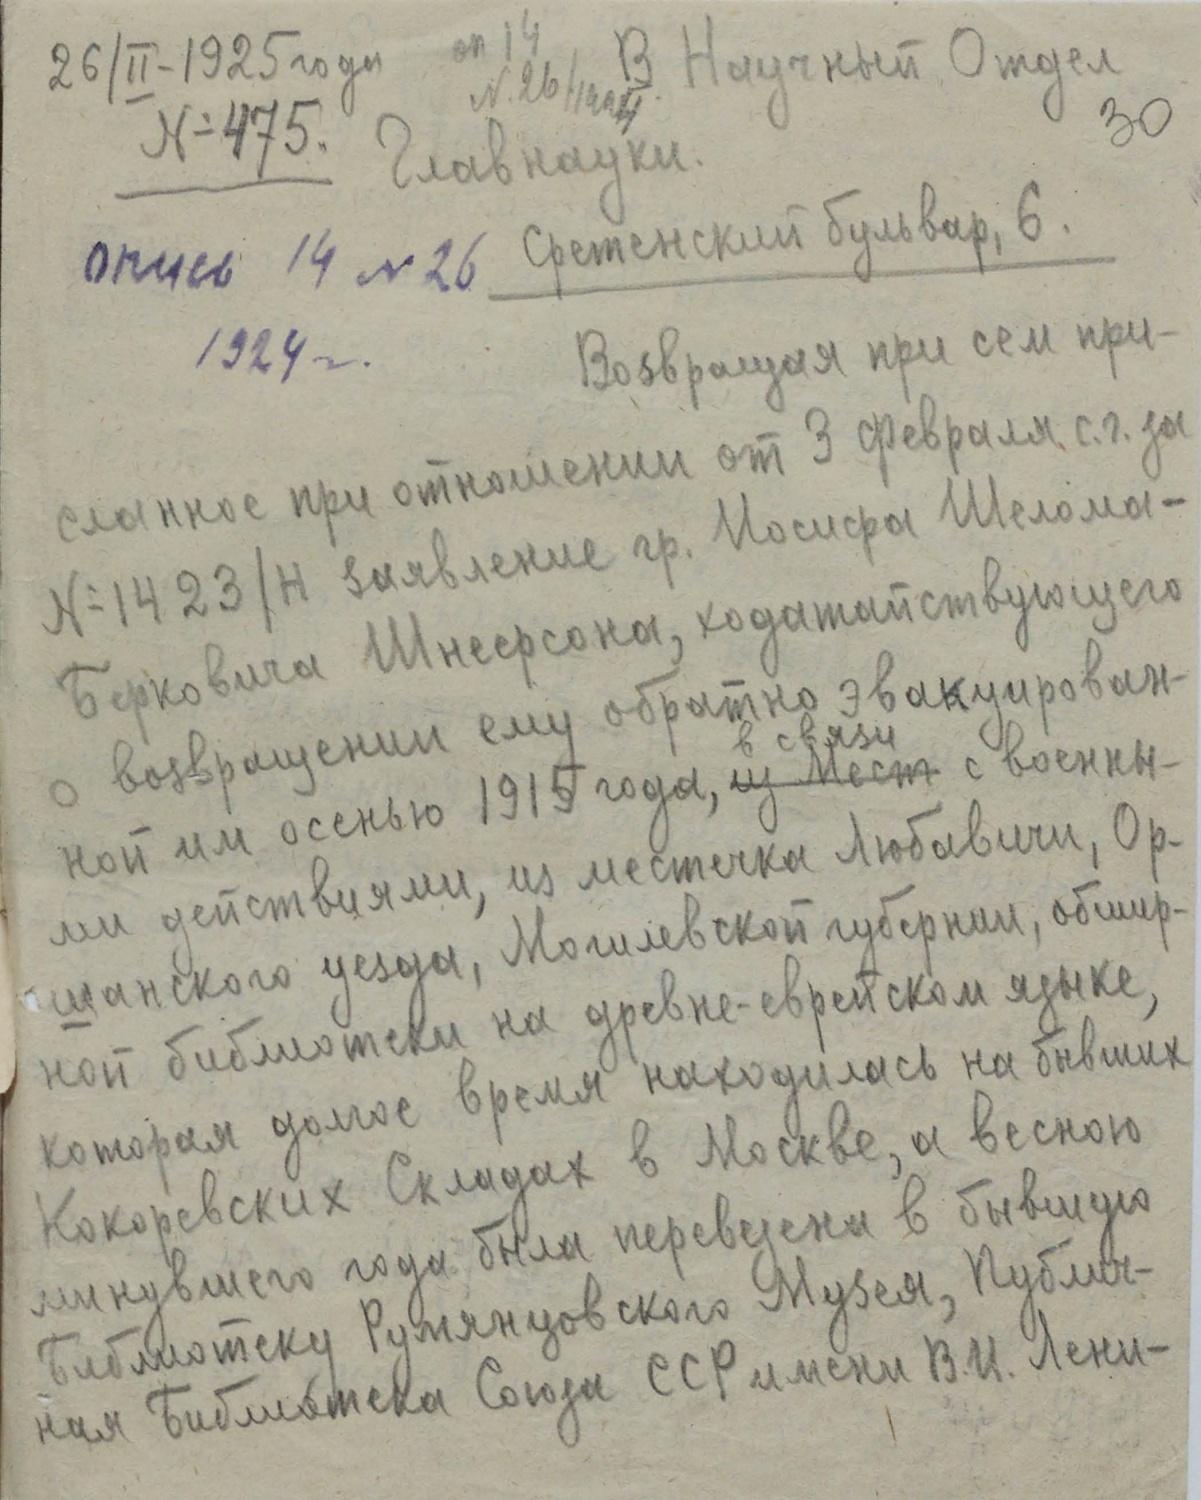 26/II-1925 года
оп 14
№ 26
В Научный Отдел
30
№ 475.
Главнауки.
Сретенский бульвар, 6.
опись 14 № 26
1924 г.
Возвращая при сем при-
сланное при отношении от 3 февраля с.г. за
№ 1423/Н заявление гр. Иосифа Шелома-
Берковича Шнеерсона, ходатайствующего
о возвращении ему обратно эвакуирован-
в связи
ной им осенью 1915 года, из Мест с военны-
ми действиями, из местечка Любавичи, Ор-
шанского уезда, Могилевской губернии, обшир-
ной библиотеки на древне-еврейском языке,
которая долгое время находилась на бывших
Кокоревских Складах в Москве, а весною
минувшего года была перевезена в бывшую
Библиотеку Румянцовского Музея, Публич-
ная Библиотека Союза ССР имени В.И. Лени-